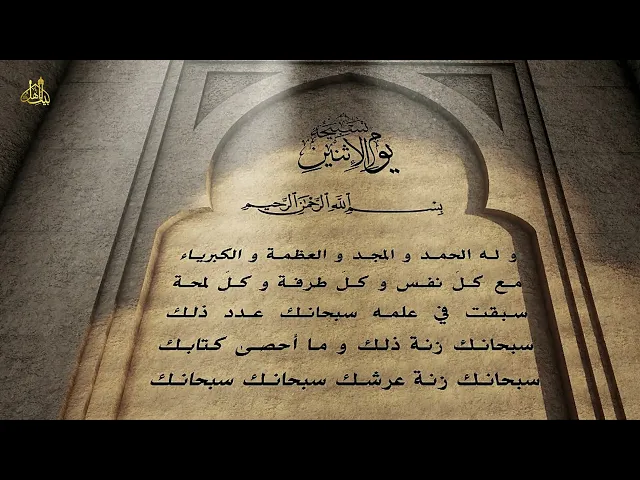 تسبيحة
يوم الإثنين
بسم الله الرحمن الرحيم
و له الحمد و المجد و العظمة و الكبرياء
مع كلّ نفس و كلّ طرفة و كلّ لمحة
سبقت في علمه سبحانك عدد ذلك
سبحانك زنة ذلك و ما أحصى كتابك
سبحانك زنة عرشك سبحانك سبحانك